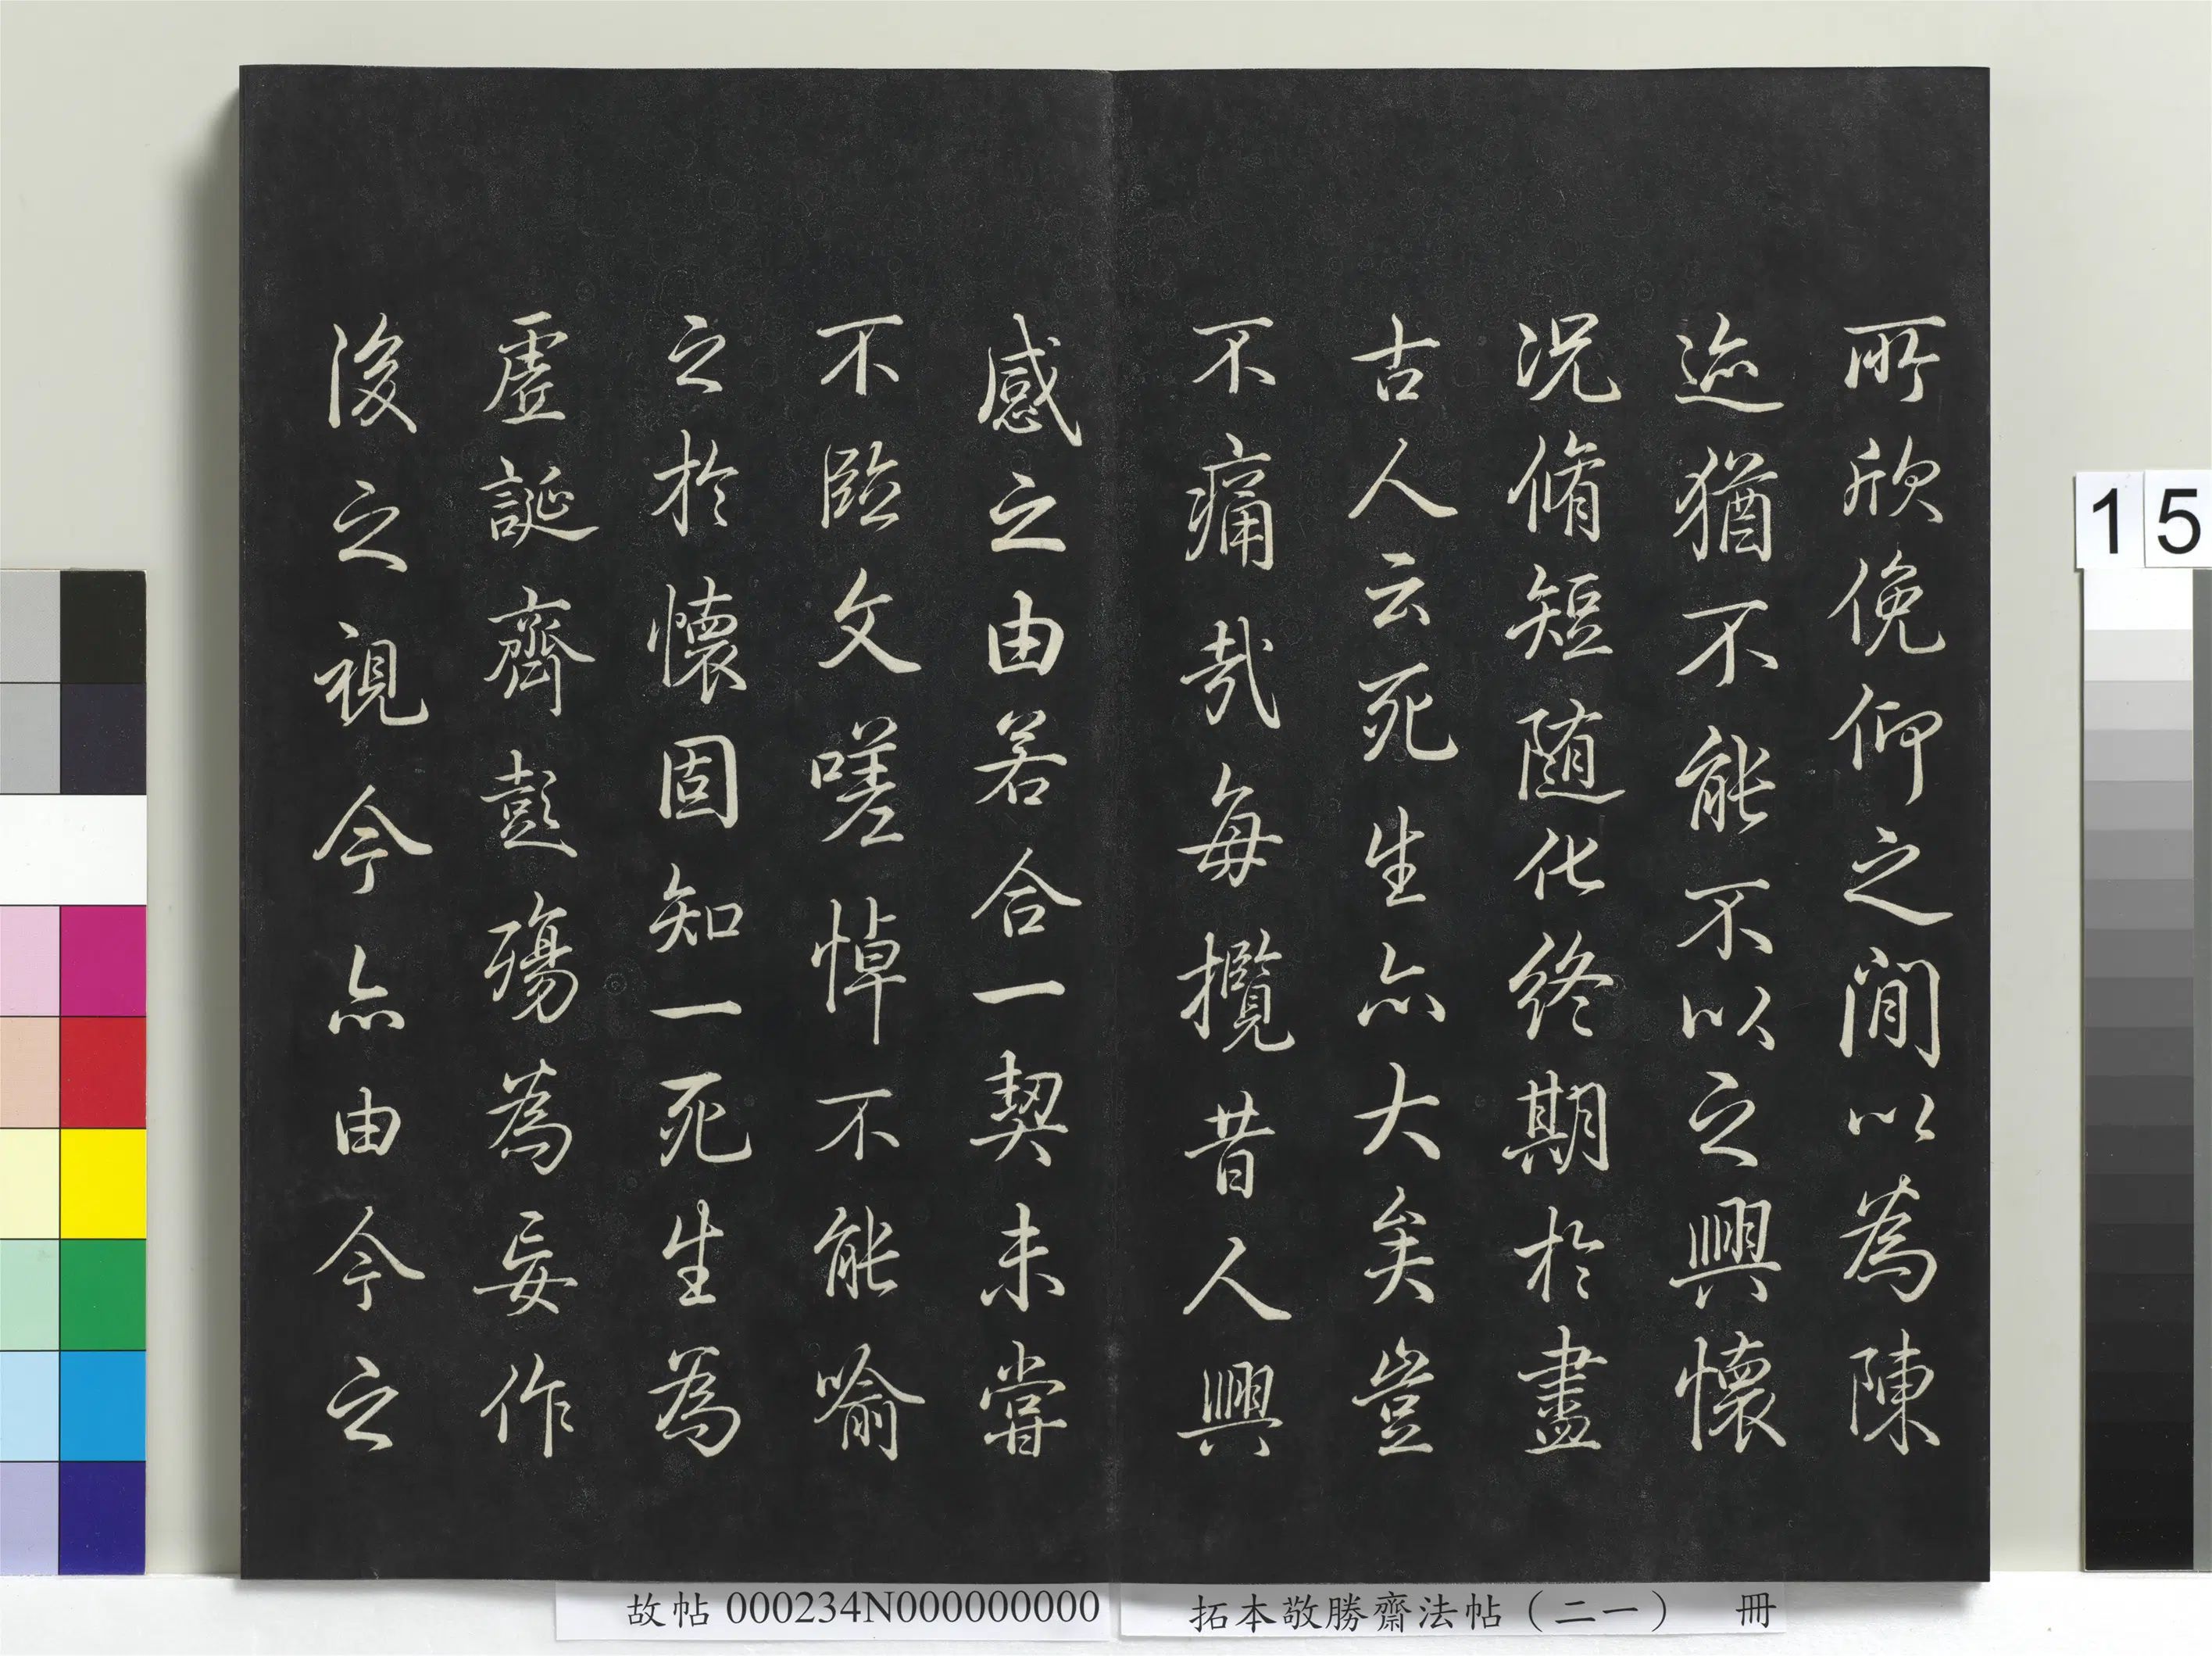 所欣俛仰之間以為陳
迹猶不能不以之興懷
况脩短随化終期於盡
古人云死生亦大矣豈
不痛哉每攬昔人興
感之由若合一契未嘗
不臨文嗟悼不能喻
之於懷固知一死生為
虛誕齊彭殤為妄作
後之視今亦由今之
15
故帖 000234N000000000
拓本敬勝齋法帖（二一） 冊